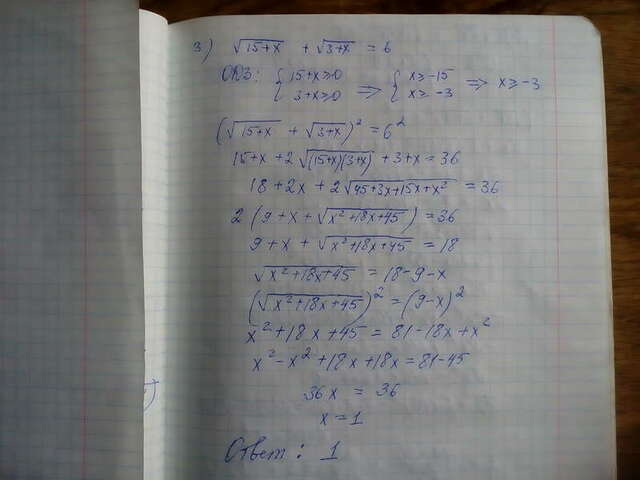 3) √(15+x) + √(3+x) = 6
ОДЗ: { 15+x≥0 ; 3+x≥0 => { x≥-15 ; x≥-3 => x≥-3
(√(15+x) + √(3+x))² = 6²
15+x+2√((15+x)(3+x)) + 3+x = 36
18+2x + 2√(45+3x+15x+x²) = 36
2(9+x+√(x²+18x+45)) = 36
9+x+√(x²+18x+45) = 18
√(x²+18x+45) = 18-9-x
(√(x²+18x+45))² = (9-x)²
x²+18x+45 = 81-18x+x²
x²-x²+18x+18x = 81-45
36x = 36
x = 1
Ответ: 1